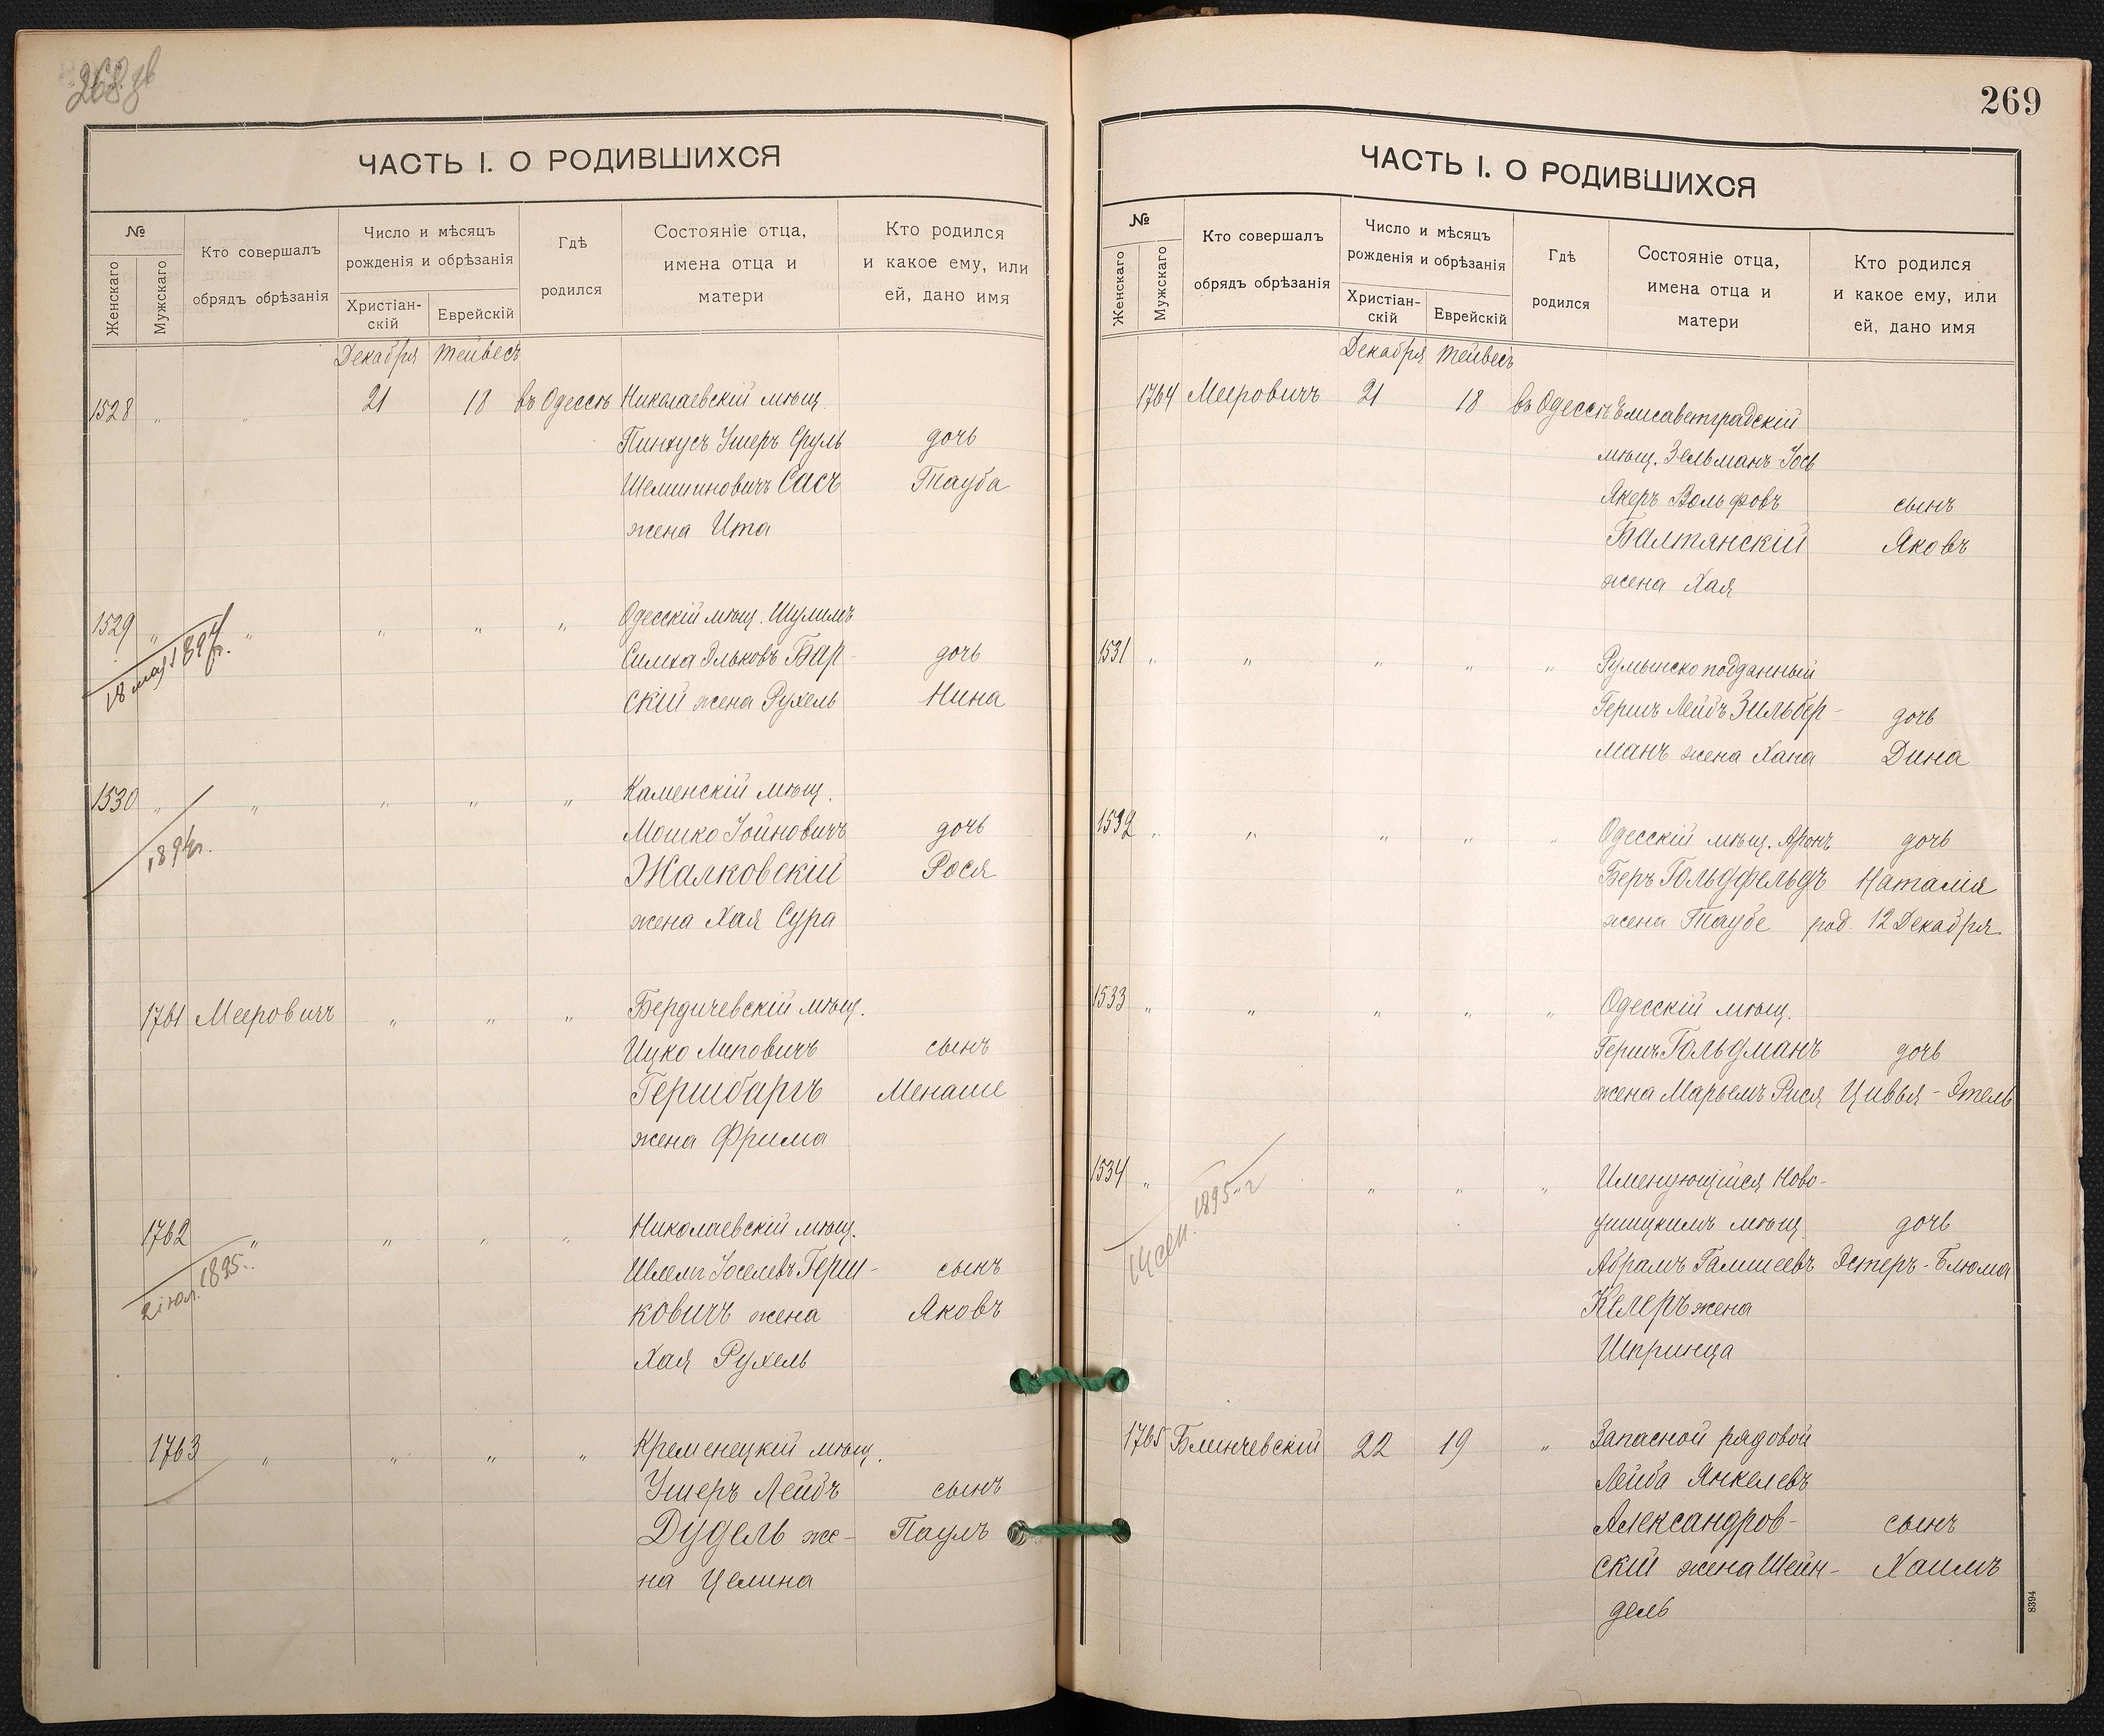 268 об
ЧАСТЬ I. О РОДИВШИХСЯ
№
Женскаго
Мужскаго
Кто совершалъ
обрядъ обрѣзанія
Число и мѣсяцъ
рожденія и обрѣзанія
Христіан-
скій
Еврейскій
Гдѣ
родился
Состояніе отца,
имена отца и
матери
Кто родился
и какое ему, или
ей, дано имя
Декабря Тейвесъ
1528 " " 21 18 въ Одессѣ Николаевскій мѣщ.
Пинхусъ Ушеръ Сруль дочь
Сасъ Тауба
жена Ита
1529 " " " " " Одесскій мѣщ. Шулимъ
18 мая 1894 г.
Симха Эльковъ Бар- дочь
скій жена Рухель Нина
1530 " " " " " Каменскій мѣщ.
Мошко Іойновичъ дочь
189 г.
Жалковскій Рося
жена Хая Сура
1761 Мееровичъ " " " Бердичевскій мѣщ.
Ицко Липовичъ сынъ
Гершбаргъ Менаше
жена Фрима
1762 " " " " Николаевскій мѣщ.
Шлема Іоселевъ Герш- сынъ
2 іюл. 1895
ковичъ жена Яковъ
Хая Рухель
1763 " " " " Кременецкій мѣщ.
Ушеръ Лейбъ сынъ
Дудель же- Паулъ
на Целина
269
ЧАСТЬ I. О РОДИВШИХСЯ
№
Женскаго
Мужскаго
Кто совершалъ
обрядъ обрѣзанія
Число и мѣсяцъ
рожденія и обрѣзанія
Христіан-
скій
Еврейскій
Гдѣ
родился
Состояніе отца,
имена отца и
матери
Кто родился
и какое ему, или
ей, дано имя
Декабря Тейвесъ
1764 Мееровичъ 21 18 въ Одессѣ Елисаветградскій
мѣщ. Зельманъ Іось
Якеръ Вольфовъ сынъ
Балтянскій Яковъ
жена Хая
1531 " " " " " Румынско подданный
Гершъ Лейбъ Зильбер- дочь
манъ жена Хана Дина
1532 " " " " " Одесскій мѣщ. Аронъ дочь
Беръ Гольдфельдъ Наталія
жена Таубе род. 12 Декабря
1533 " " " " " Одесскій мѣщ.
Гершъ Гольдманъ дочь
жена Марьемъ Рися Цивья-Этель
1534 " " " " Именующійся Ново-
14 сен. 1895 г
ушицкимъ мѣщ. дочь
Абрамъ Эстеръ-Блюма
Келеръ жена
Шпринца
1765 Блинчевскій 22 19 " Запасной рядовой
Лейба Янкелевъ
Александров- сынъ
скій жена Шейн- Хаимъ
дель
8394